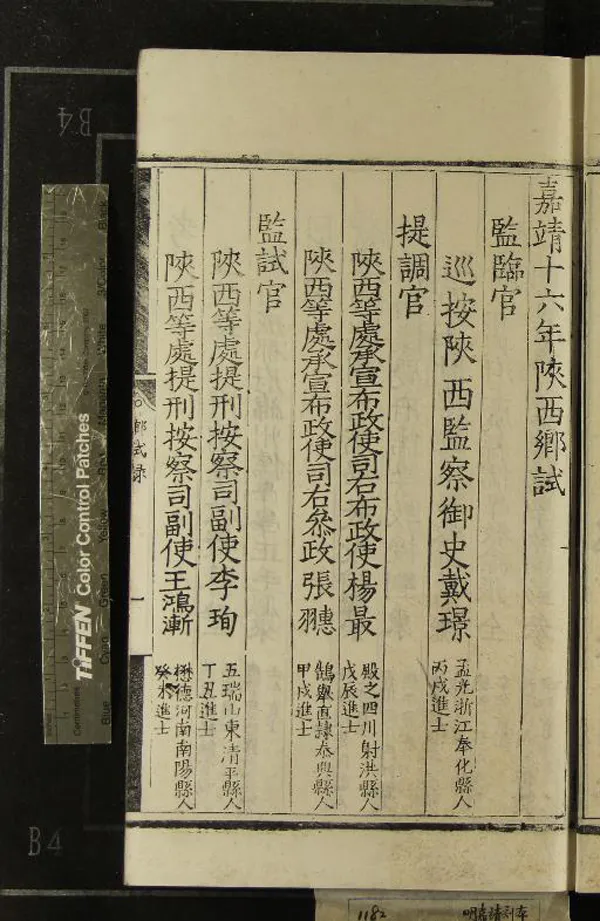 嘉靖十六年陝西鄉試
監臨官
巡按陝西監察御史戴璟
孟光浙江奉化縣人
丙戌進士
提調官
陝西等處承宣布政使司右布政使楊最
殿之四川射洪縣人
戊辰進士
陝西等處承宣布政使司右叅政張𦒍
鵠舉直隸泰興縣人
甲戌進士
監試官
陝西等處提刑按察司副使李珣
五瑞山東清平縣人
丁丑進士
陝西等處提刑按察司副使王鴻漸
懋德河南南陽縣人
癸未進士
鄉試录
一
B4
B4
TIFFEN Color Control Patches
Centimetres
Blue
Cyan
Green
Yellow
Red
Magenta
White
Black
1182
明嘉靖刻本